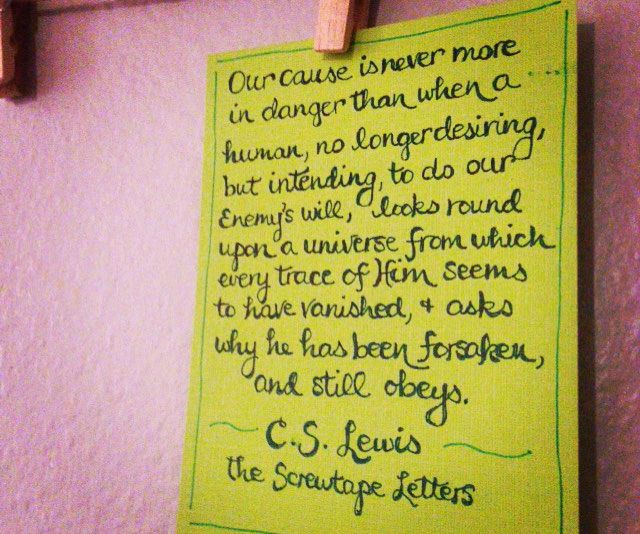 Our cause is never more
in danger than when a
human, no longer desiring,
but intending, to do our
Enemy's will, looks round
upon a universe from which
every trace of Him seems
to have vanished, + asks
why he has been forsaken,
and still obeys.
C.S. Lewis
the Screwtape Letters